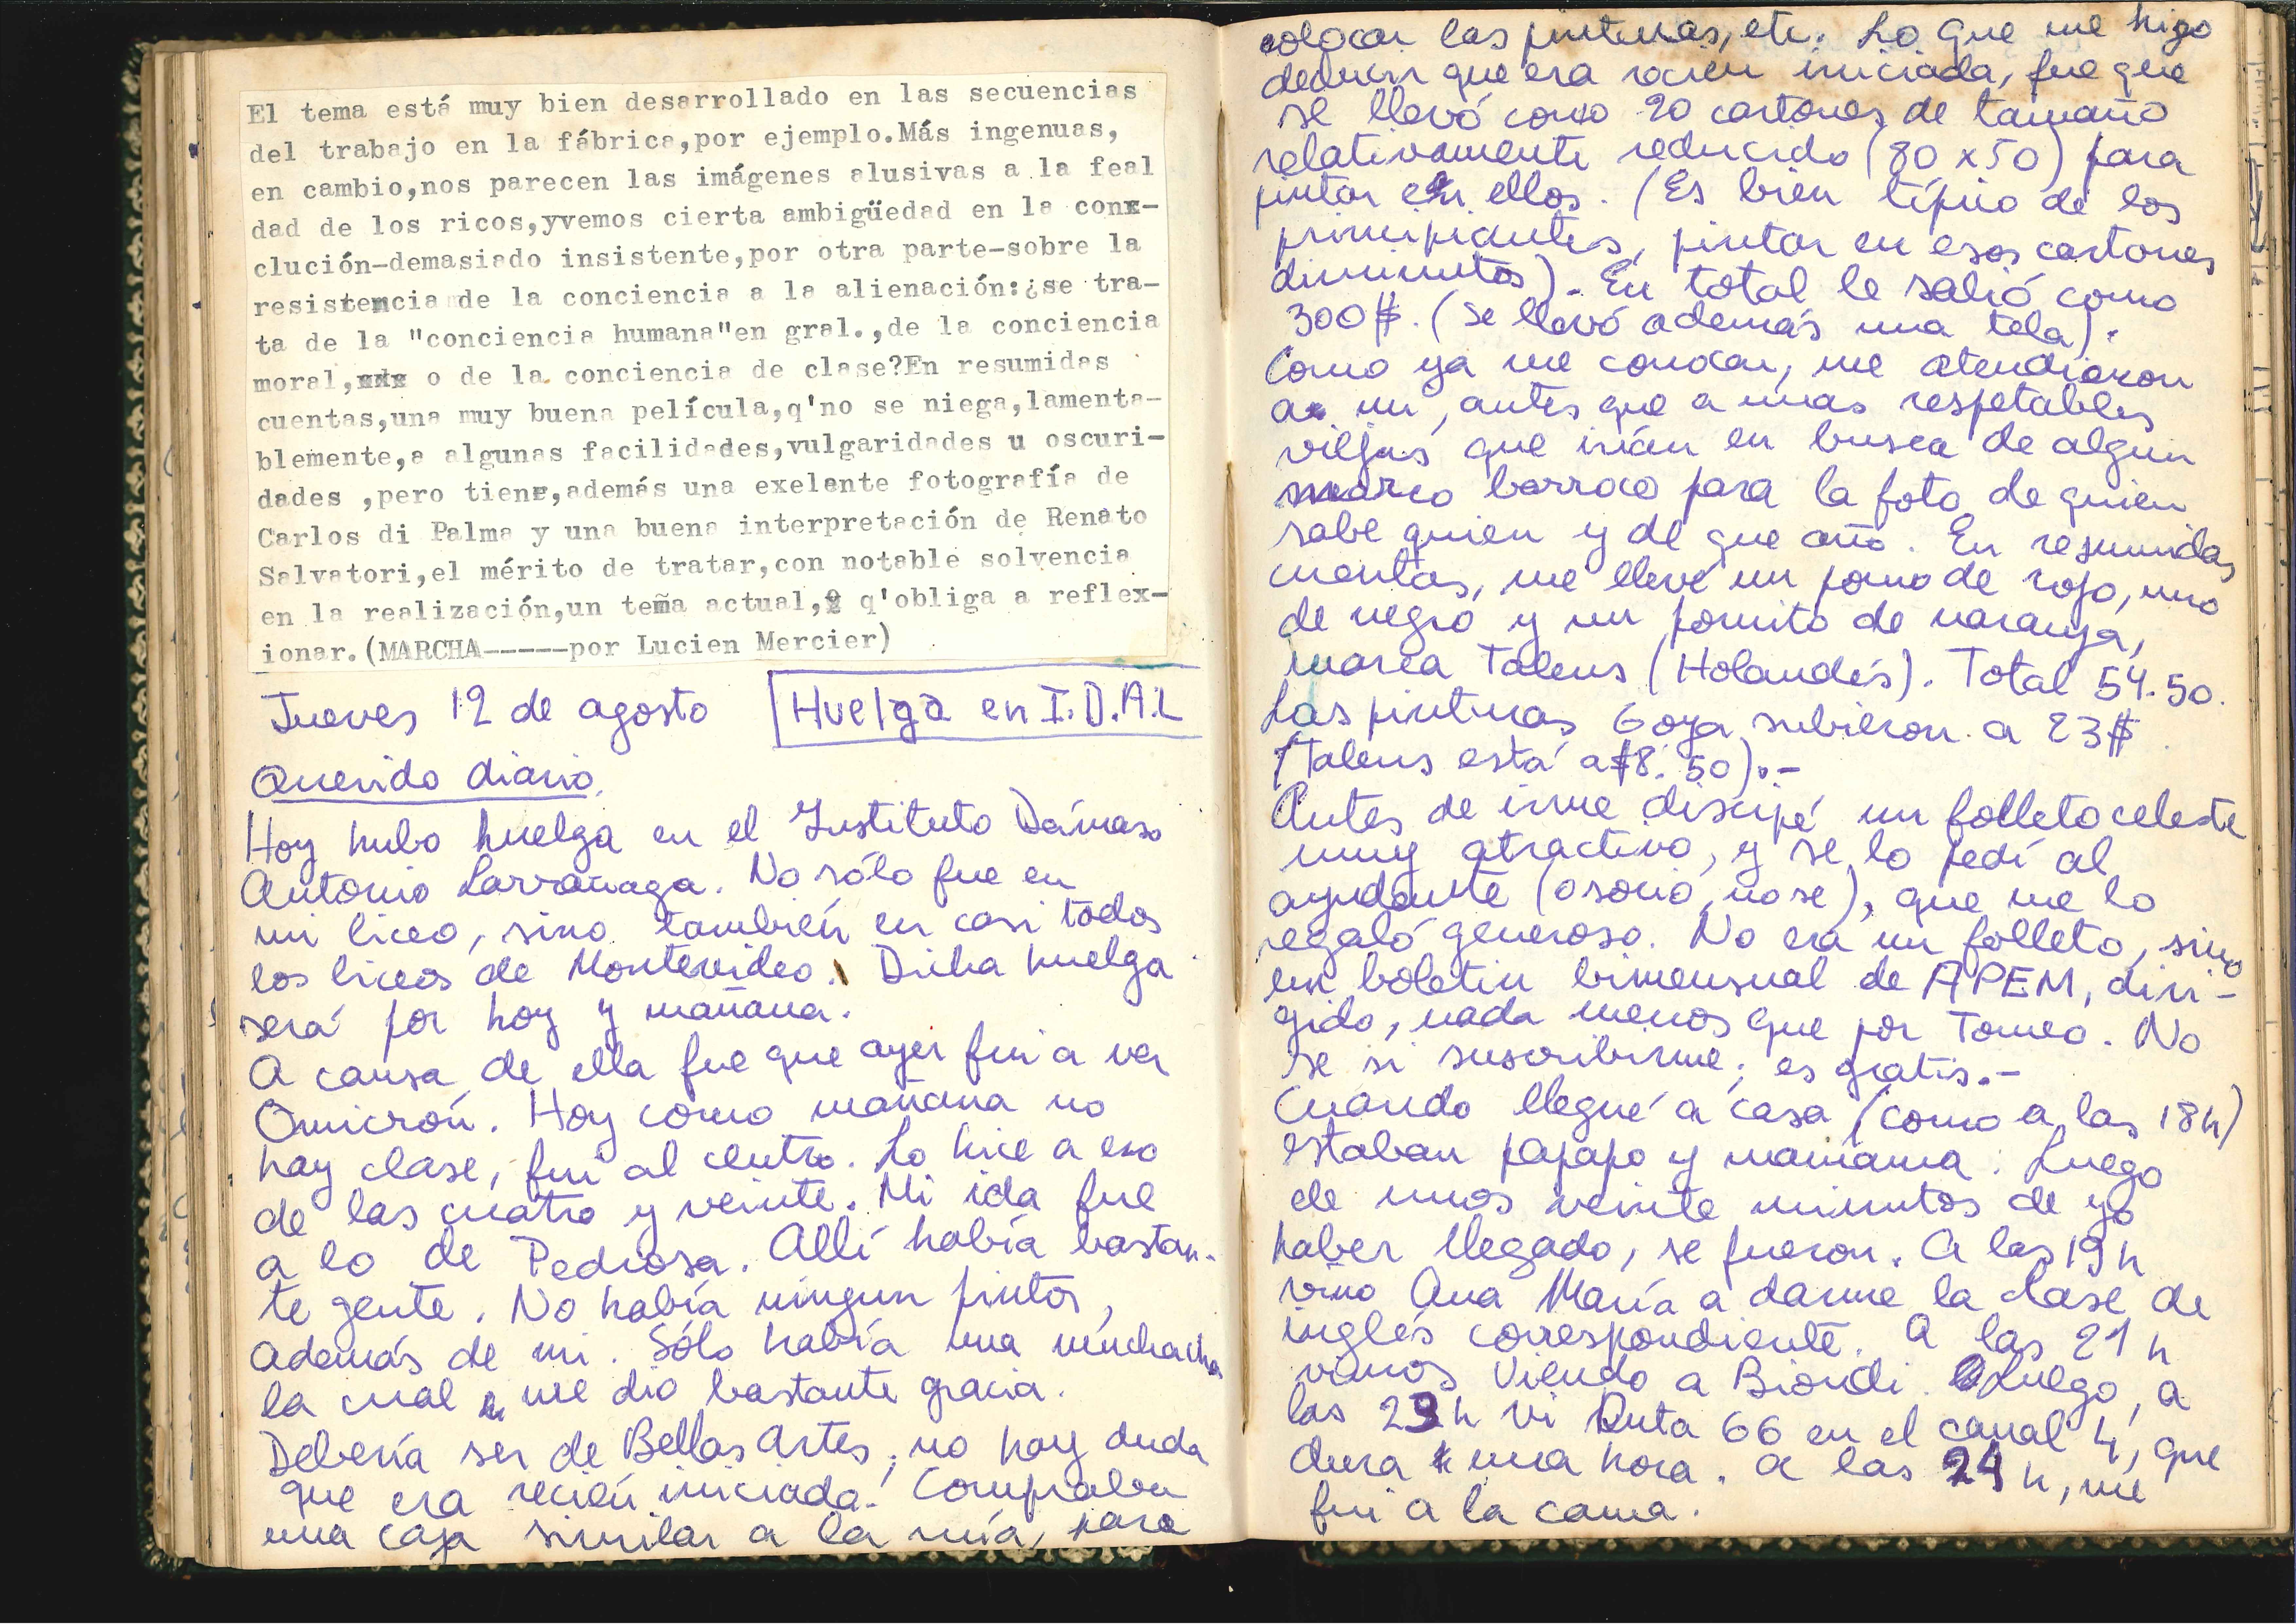 El tema está muy bien desarrollado en las secuencias
del trabajo en la fábrica,por ejemplo.Más ingenuas,
en cambio,nos parecen las imágenes alusivas a la feal
dad de los ricos,yvemos cierta ambigüedad en la conx-
clución-demasiado insistente,por otra parte-sobre la
resistencia de la conciencia a la alienación:¿se tra-
ta de la "conciencia humana"en gral.,de la conciencia
moral, o de la conciencia de clase?En resumidas
cuentas,una muy buena película,q'no se niega,lamenta-
blemente,a algunas facilidades,vulgaridades u oscuri-
dades ,pero tiene,además una exelente fotografía de
Carlos di Palma y una buena interpretación de Renato
Salvatori,el mérito de tratar,con notable solvencia
en la realización,un tema actual, q'obliga a reflex-
ionar.(MARCHA-----por Lucien Mercier)
Jueves 12 de agosto
Huelga en I.D.A.L
Querido diario,
Hoy hubo huelga en el Instituto Dámaso
Antonio Larrañaga. No sólo fue en
mi liceo, sino también en casi todos
los liceos de Montevideo. Dicha huelga
será por hoy y mañana.
A causa de ella fue que ayer fui a ver
Omicrón. Hoy como mañana no
hay clase, fui al centro. Lo hice a eso
de las cuatro y veinte. Mi ida fue
a lo de Pedrosa. Allí había bastan-
te gente. No había ningun pintor,
además de mi. Sólo había una muchacha
la cual me dio bastante gracia.
Debería ser de Bellas Artes; no hay duda
que era recién iniciada. Compraba
una caja similar a la mía, para
colocar las pinturas, etc. Lo que me hizo
deducir que era recien iniciada, fue que
se llevó como 20 cartones de tamaño
relativamente reducido (80 x 50) para
pintar en ellos. (Es bien típico de los
principiantes, pintar en esos cartones
diminutos). En total le salió como
300$. (Se llevó además una tela).
Como ya me conocen, me atendieron
a mi, antes que a unas respetables
viejas que irían en busca de algun
marco barroco para la foto de quien
sabe quien y de que año. En resumidas
cuentas, me llevé un pomo de rojo, uno
de negro y un pomito de naranja,
marca Talens (Holandés). Total 54.50.
Las pinturas Goya subieron a 23$
(Talens está a 18.50).-
Antes de irme disipé un folleto celeste
muy atractivo, y se lo pedí al
ayudante (o socio, no se), que me lo
regaló generoso. No era un folleto, sino
un boletin bimensual de APEM, diri-
gido, nada menos que por Tomeo. No
se si suscribirme; es gratis.-
Cuando llegué a casa (como a las 18h)
estaban papapo y mamama. Luego
de unos veinte minutos de yo
haber llegado, se fueron. A las 19 h
vino Ana María a darme la clase de
inglés correspondiente. A las 21 h
vimos Viendo a Biondi. Luego, a
las 23 h vi Ruta 66 en el canal 4, que
dura una hora. a las 24 h, me
fui a la cama.